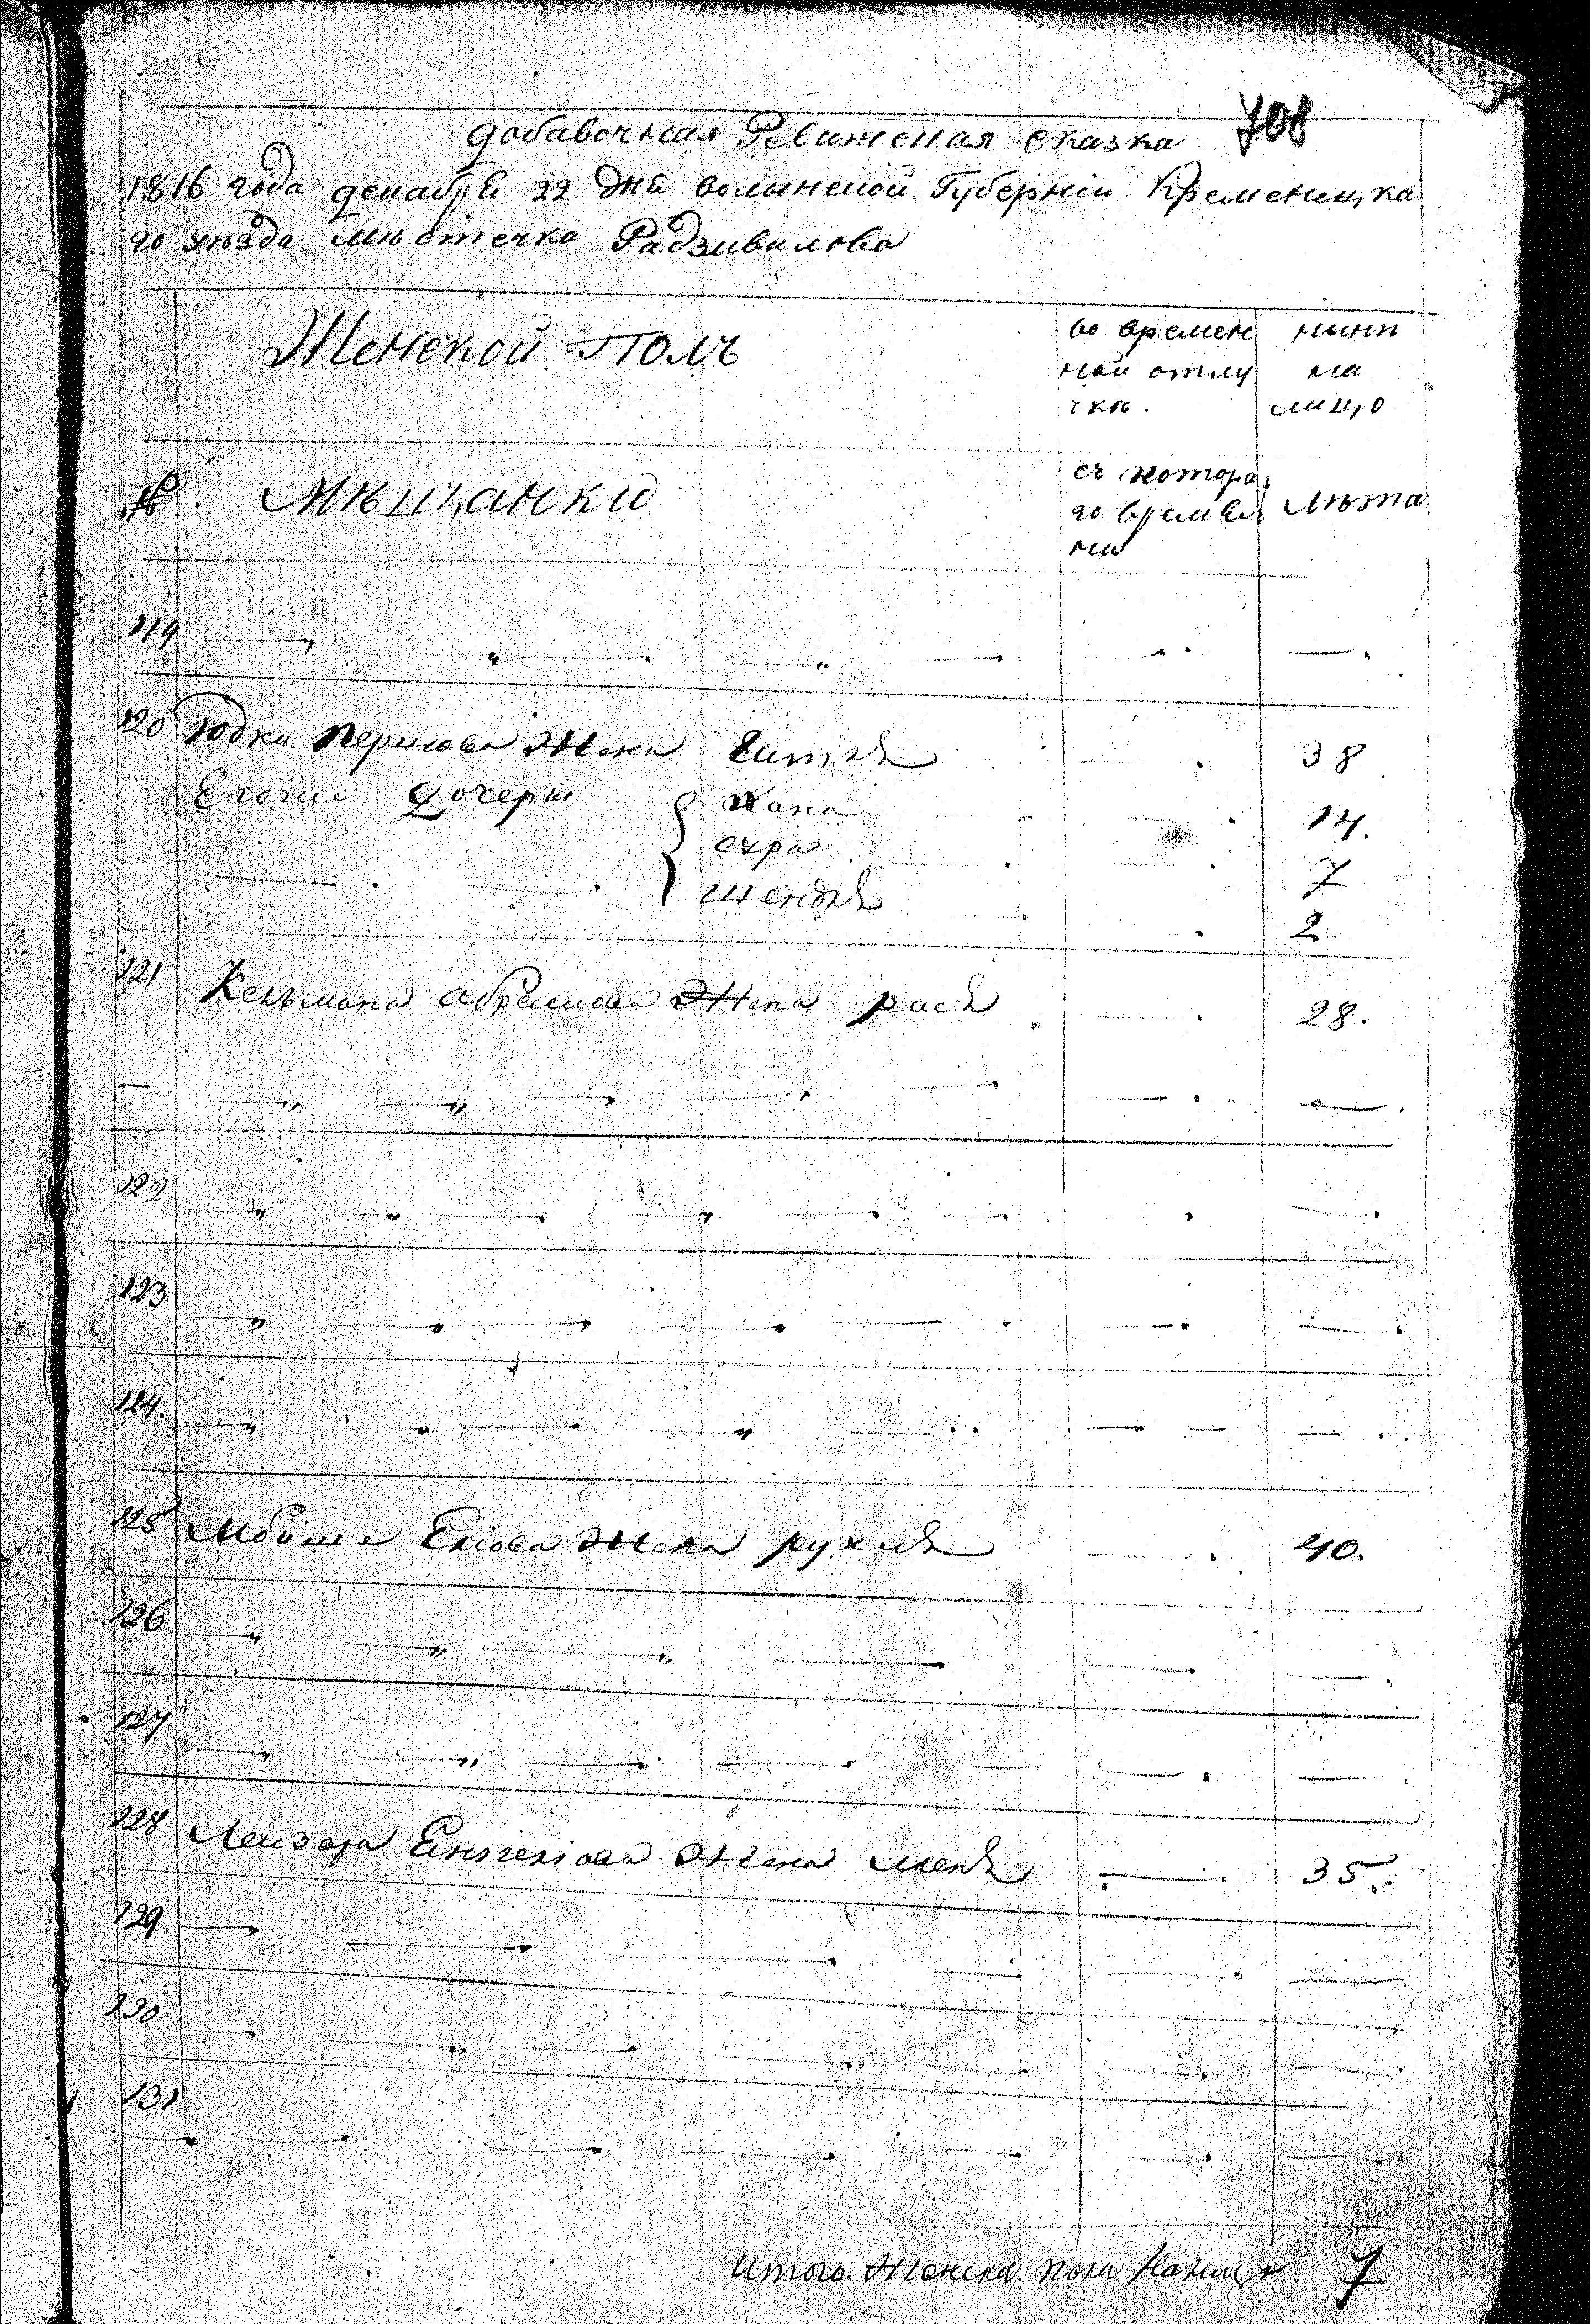 708
добавочная Ревижская сказка
1816 года декабря 22 дня волынской Губерніи Кременецка
го уѣзда мѣстечка Радзивилова
Женской Полъ
во времен
ной отлу
чкѣ.
нынѣ
на
лицо
№
Мѣщанки
съ котора
го време
ни
Лѣта
119
120 Юдки Перцова Жена Гитля 38
Егоже дочеры Хана 14.
сура 7
Шендля 2
121 Кельмана абрамова Жена рася 28.
122
123
124.
125 Мошка Жена рухля 40.
126
127
128 Лейзора Жена 35.
129
130
131
Итого Женска пола Налицо 7